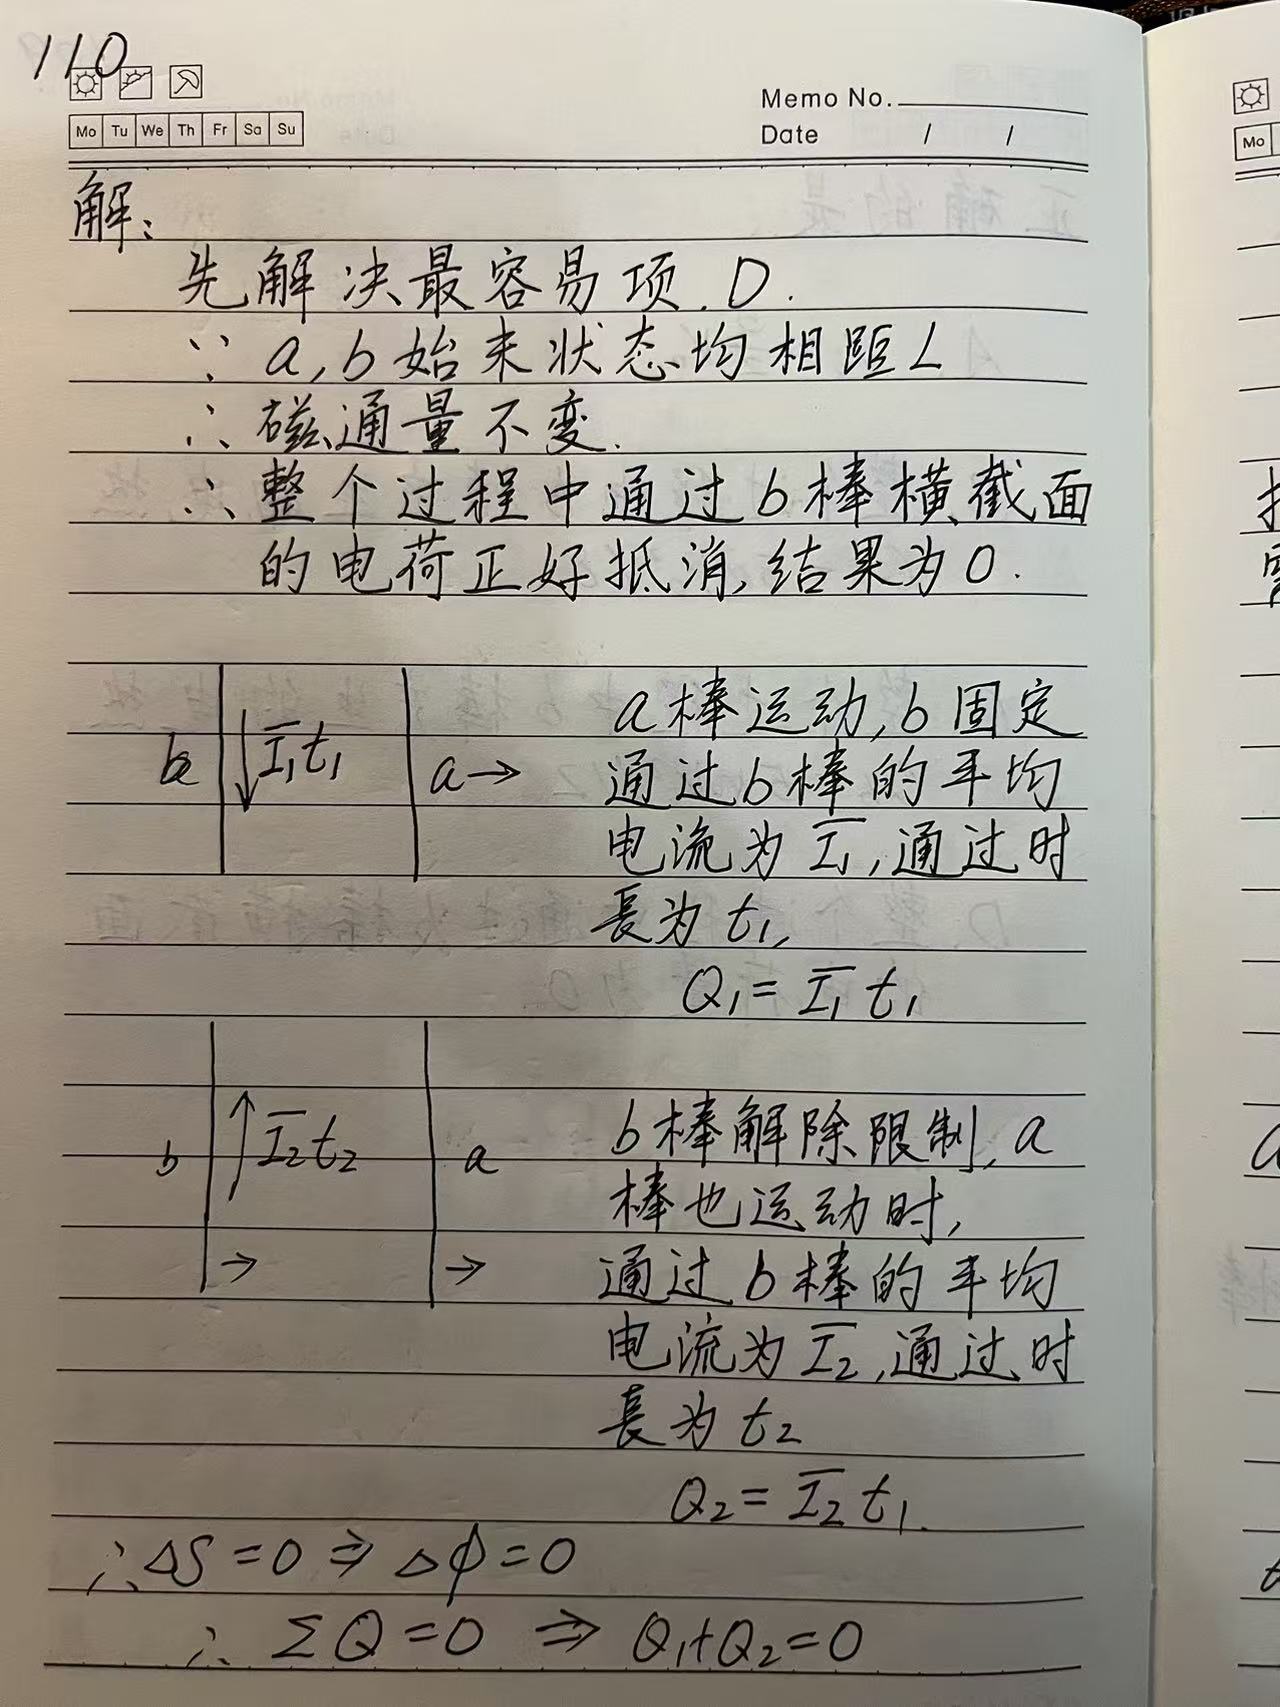 110
Memo No.
Mo Tu We Th Fr Sa Su
Date / /
解:
先解决最容易项.D.
∵ a,b始末状态均相距L
∴ 磁通量不变.
∴ 整个过程中通过b棒横截面
的电荷正好抵消,结果为0.
b ↓ I̅₁t₁ a→
a棒运动,b固定
通过b棒的平均
电流为 I̅₁,通过时
長为 t₁,
Q₁= I̅₁ t₁
b ↑ I̅₂t₂ a
→ →
b棒解除限制,a
棒也运动时,
通过b棒的平均
电流为 I̅₂,通过时
長为 t₂
Q₂= I̅₂ t₁.
∴ΔS=0⇒ΔΦ=0
∴ ΣQ=0 ⇒ Q₁+Q₂=0
Mo